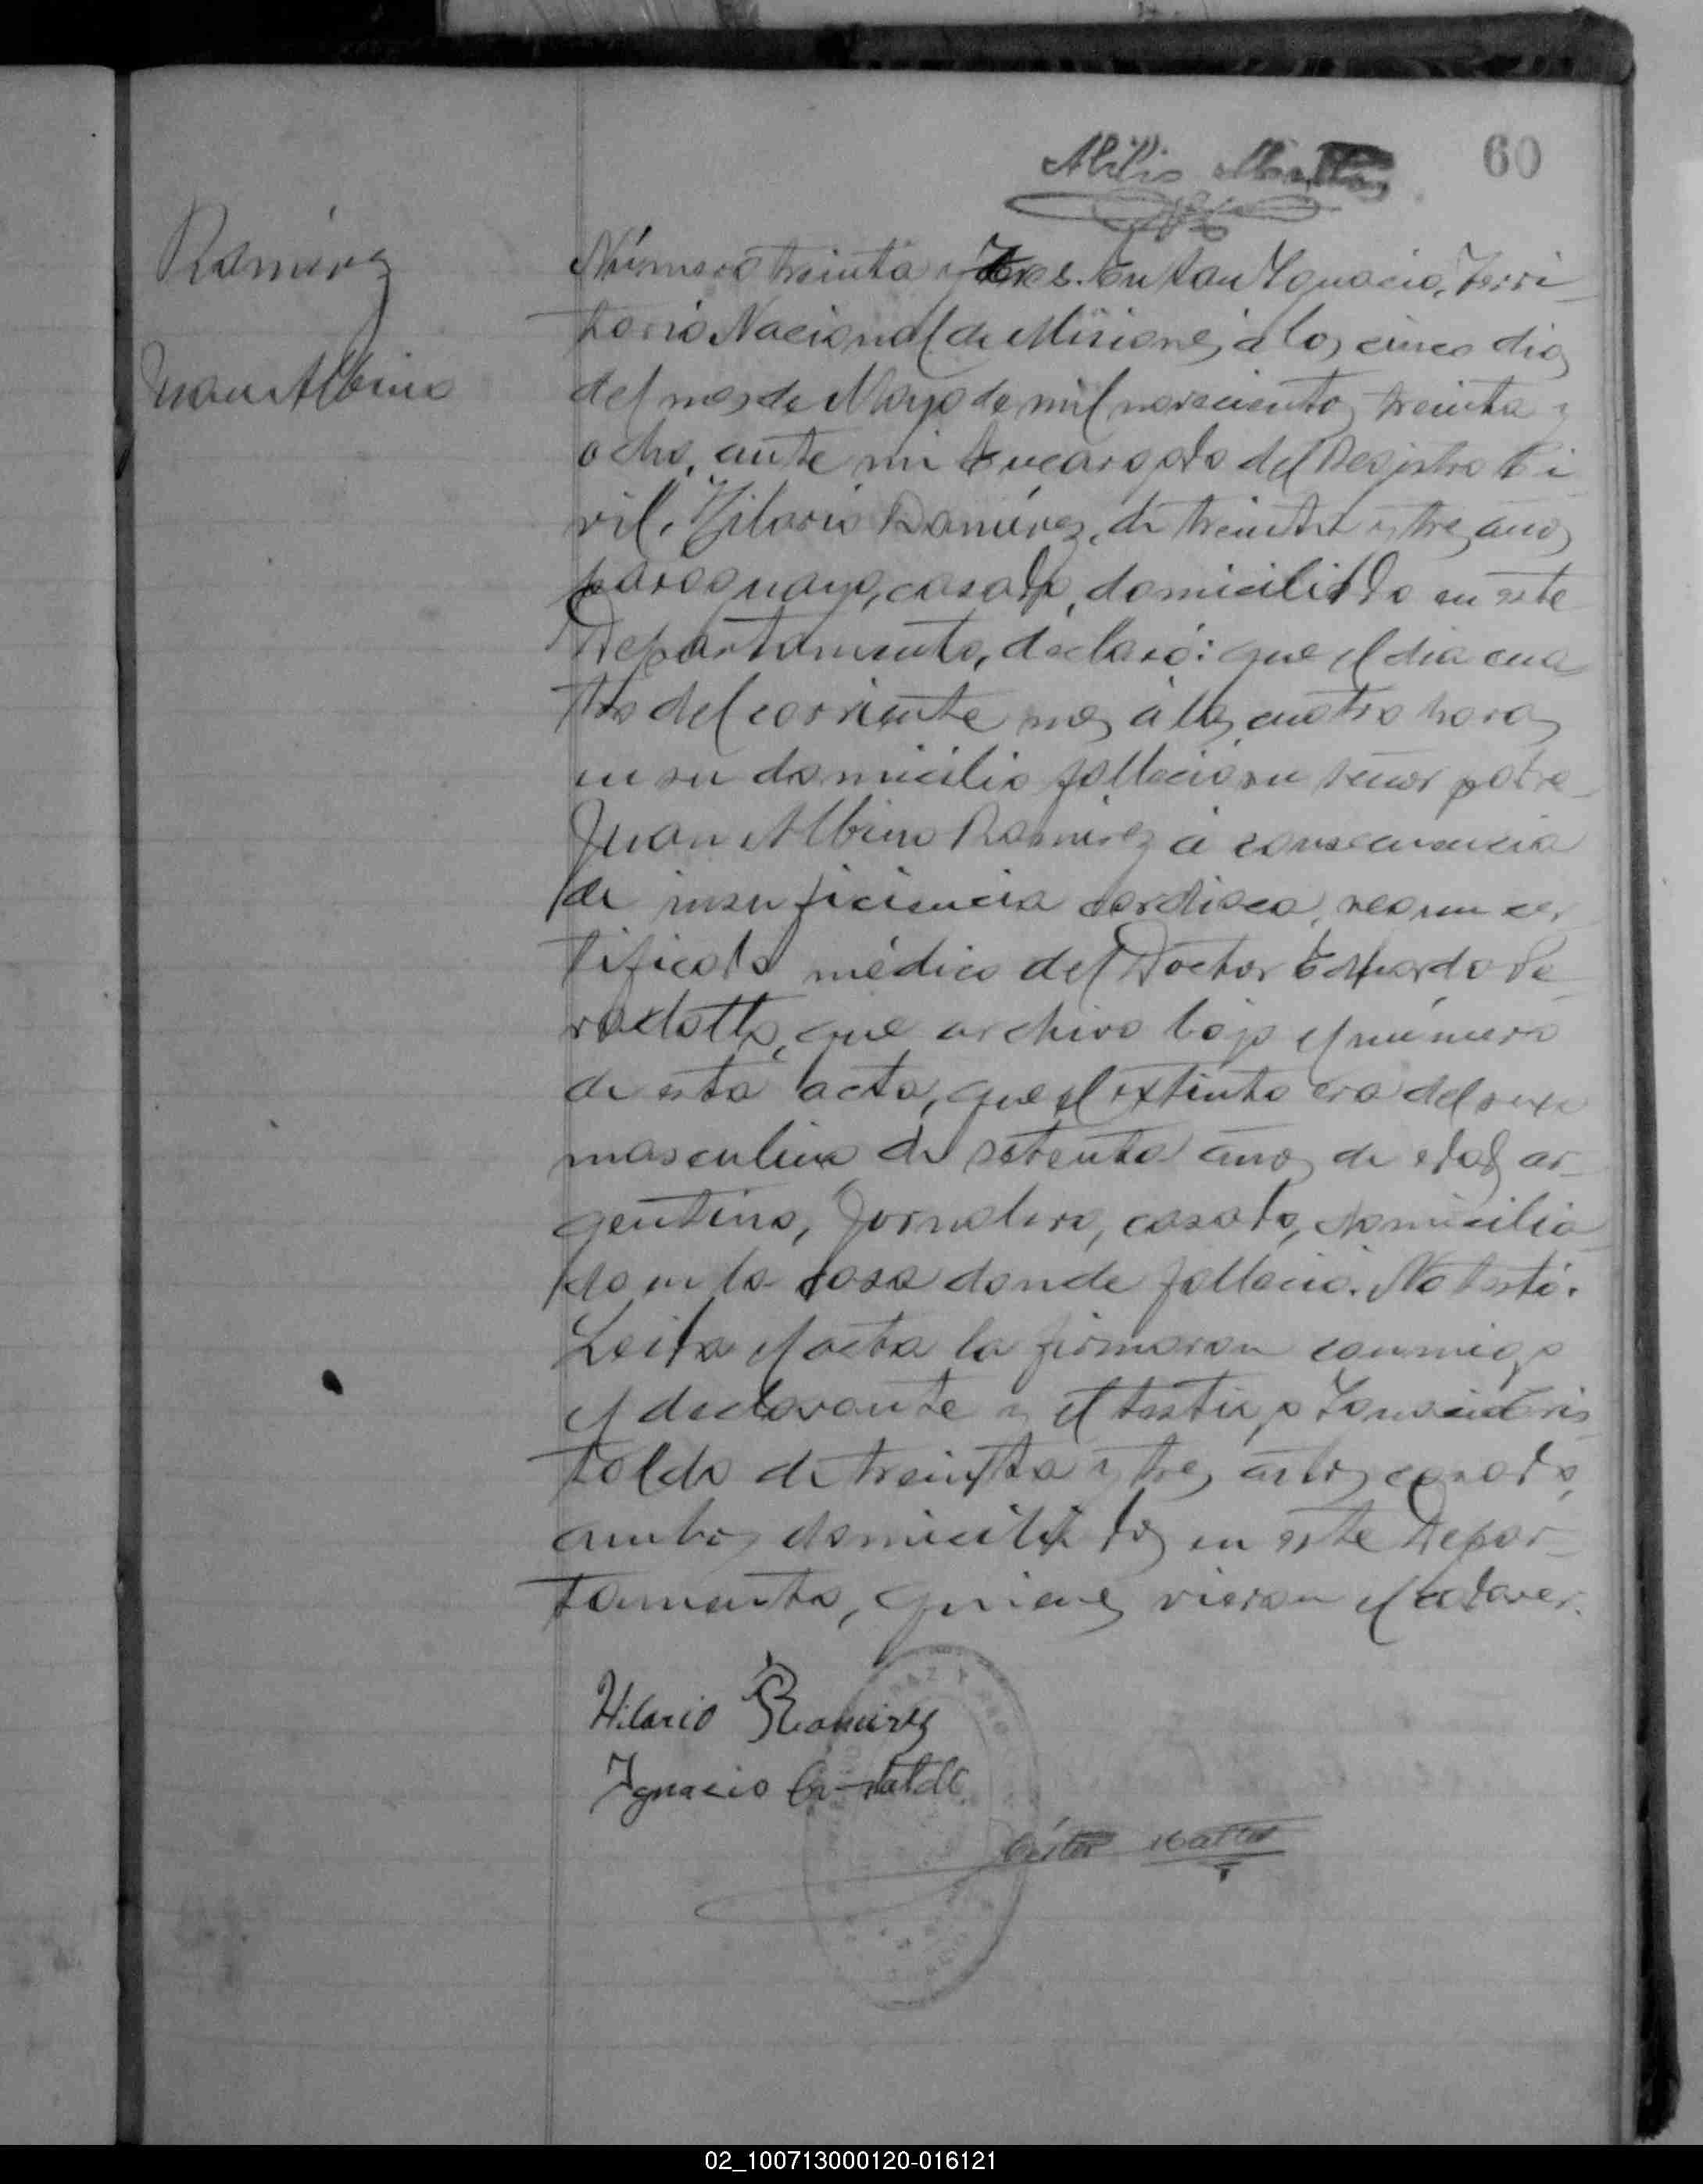 60
Ramírez
Juan Albino
Número treinta y tres. En San Ygnacio, Terri-
torio Nacional de Misiones, á los cinco dias
del mes de Mayo de mil novecientos treinta y
ocho, ante mi Encargado del Registro Ci-
vil, Hilario Ramírez, de treinta y tres años
paraguayo, casado, domiciliado en este
Departamento, declaró: que el dia cua-
tro del corriente mes á las cuatro horas
en su domicilio falleció su señor padre
Juan Albino Ramirez á consecuencia
de insuficiencia cardiaca, segun cer-
tificado médico del Doctor Eduardo
que archivo bajo el número
de esta acta, que el extinto era del sexo
masculino de setenta años de edad ar-
gentino, jornalero, casado, domicilia-
do en la casa donde falleció. No testó.
Leida el acta la firmaron conmigo
el declarante y el testigo
de treinta y tres años casado,
ambos domiciliados en este Depar-
tamento, quienes vieron el cadaver.
Hilario Ramirez
Ignacio
02_100713000120-016121